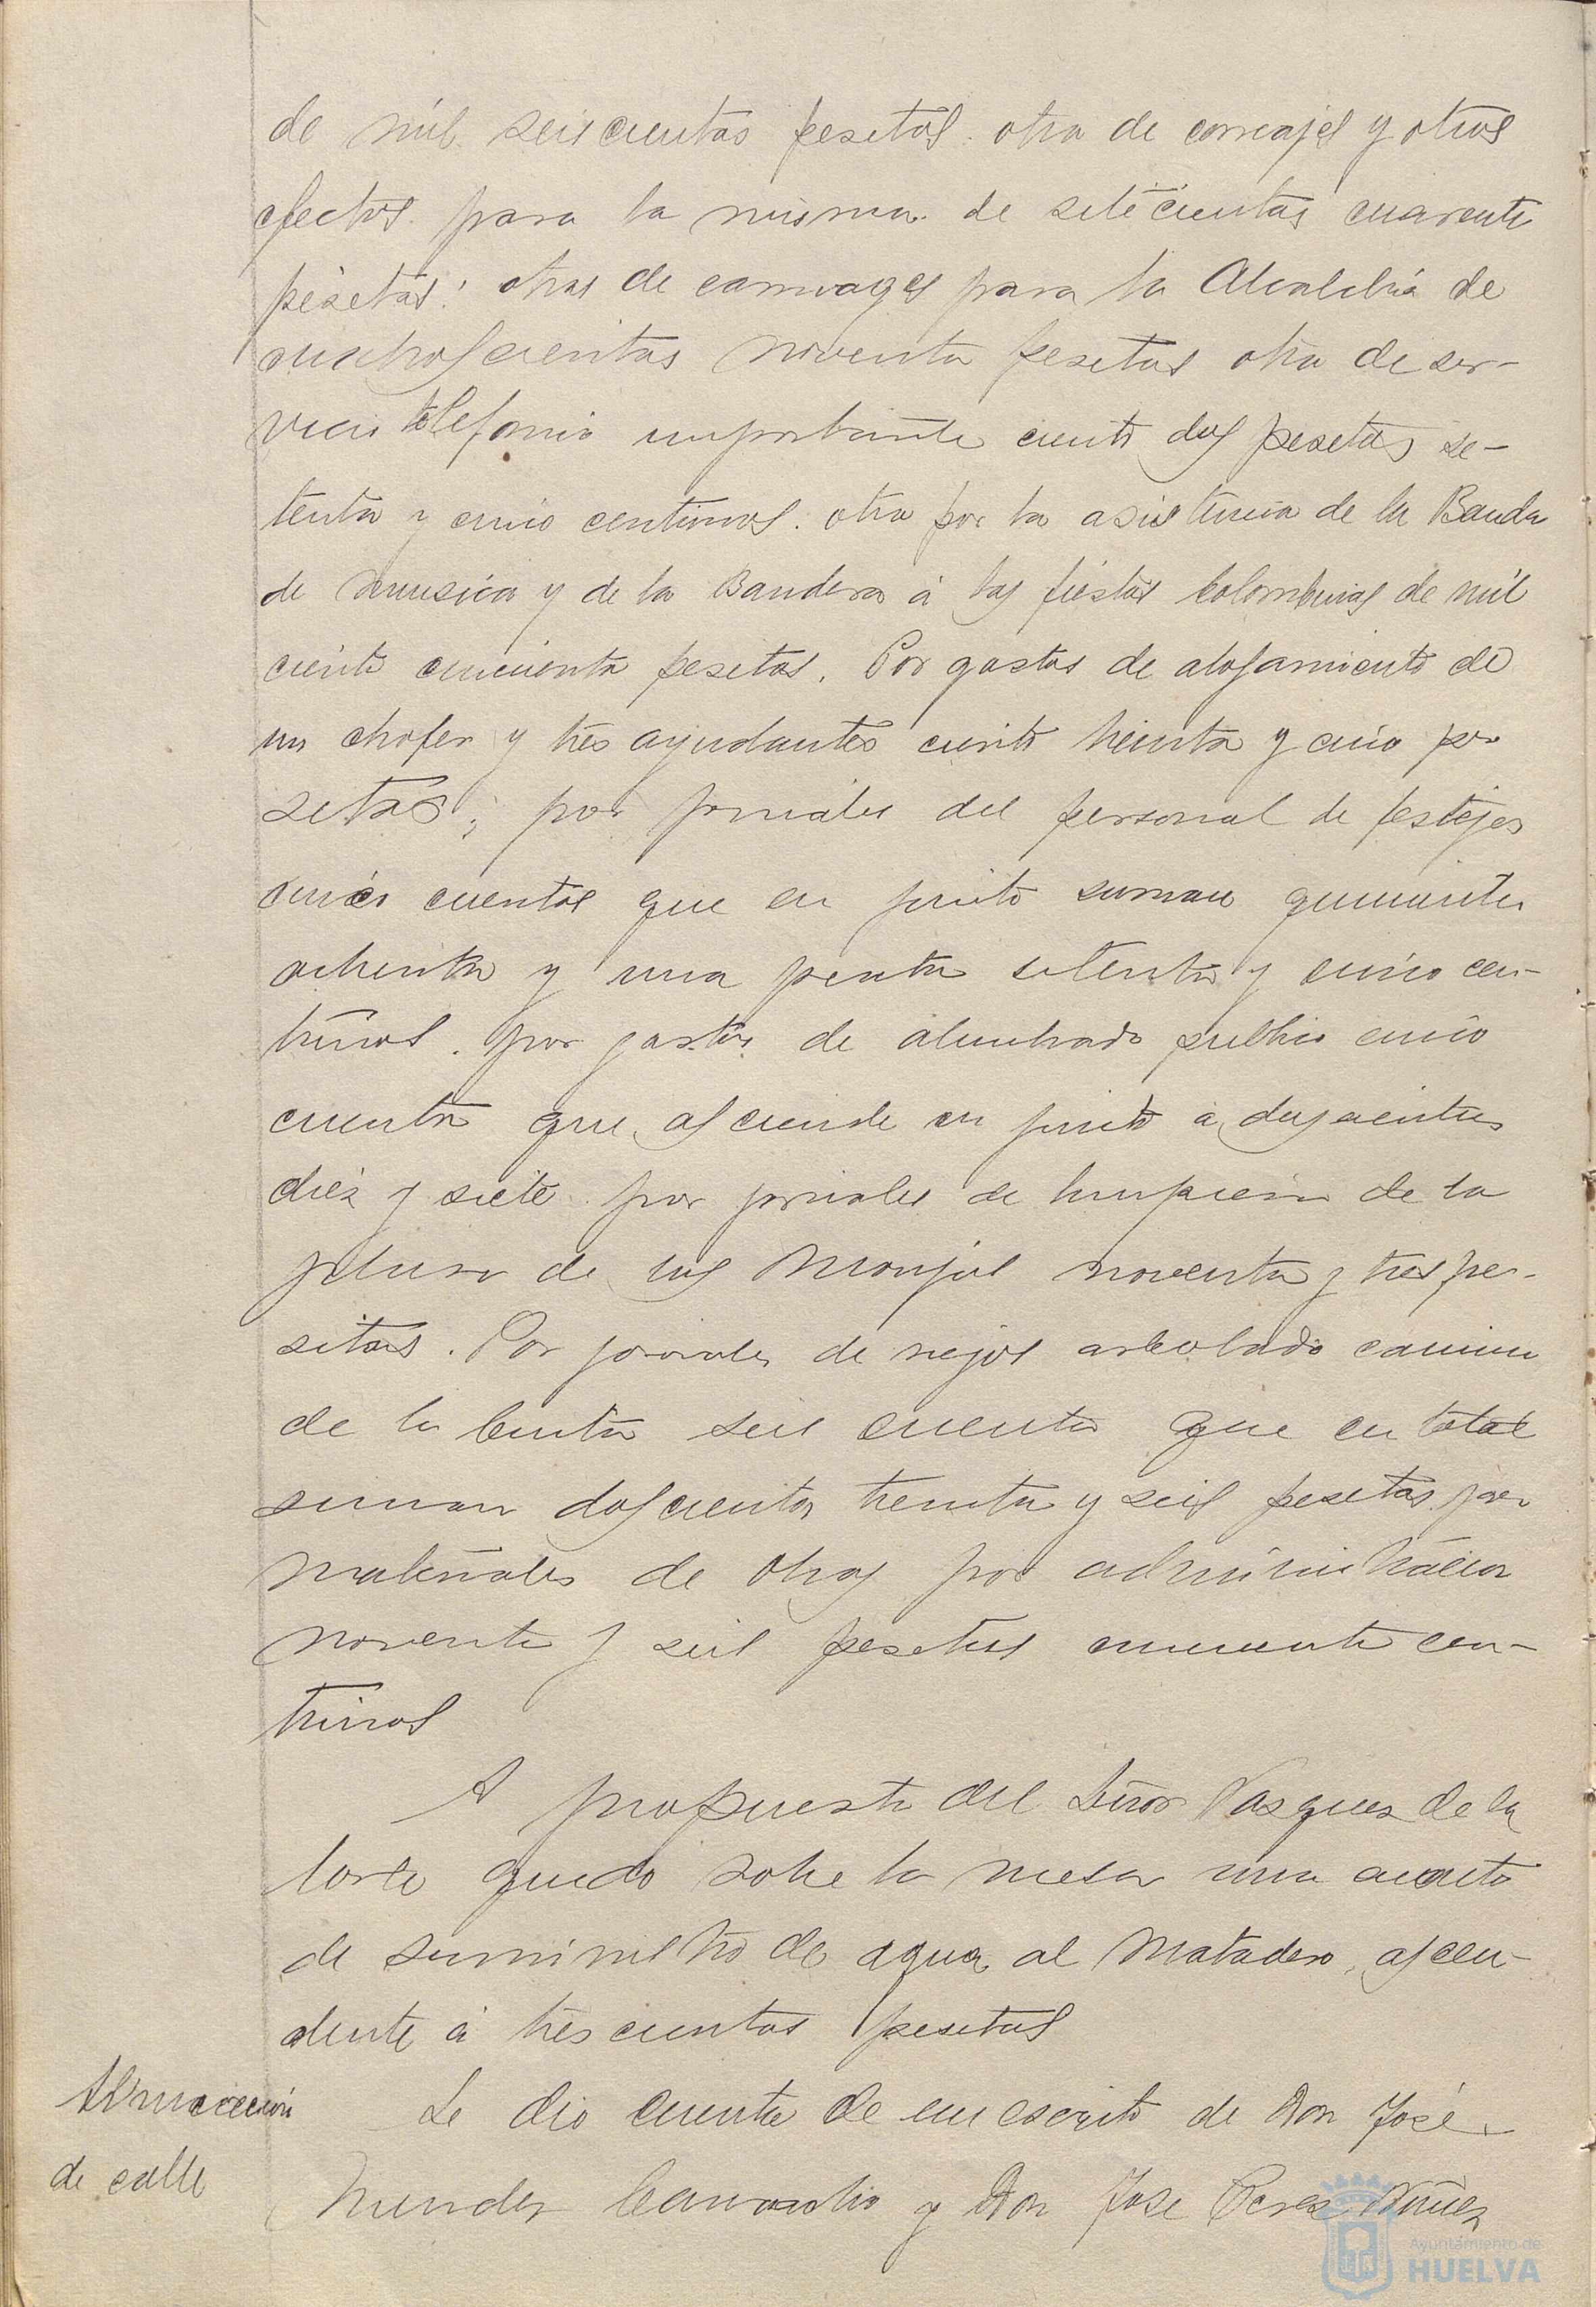 de mil seiscientas pesetas. otra de correajes y otros
efectos para la misma de setecientas cuarenta
pesetas: otras de carruages para la Alcaldia de
cuatroscientas noventa pesetas otra de ser-
vicio telefonico importante ciento dos pesetas se-
tenta y cinco centimos. otra por la asistencia de la Banda
de musica y de la Bandera á las fiestas Colombinas de mil
ciento cincuenta pesetas. Por gastos de alojamiento de
un chofer y tres ayudantes ciento treinta y cinco pe
setas; por jornales del personal de festejos
cinco cuentas que en junto suman quinientas
ochenta y una peseta setenta y cinco cen-
timos. por gastos de alumbrado publico cinco
cuentas que asciende en junto a doscientas
diez y siete por jornales de limpieza de la
de las Monjas noventa y tres pe-
setas. Por jornales de riegos arbolado camino
de la Cinta seis cuentas que en total
suman doscientas treinta y seis pesetas por
materiales de obras por administracion
noventa y seis pesetas cincuenta cen-
timos
A propuesta del Señor Vasquez de la
Corte quedo sobre la mesa una cuenta
de suministro de agua al Matadero, ascen-
dente á trescientas pesetas
Alineacion Se dio cuenta de un escrito de Don José
de calle y Don Jose Perez Nuñez
Ayuntamiento de
HUELVA